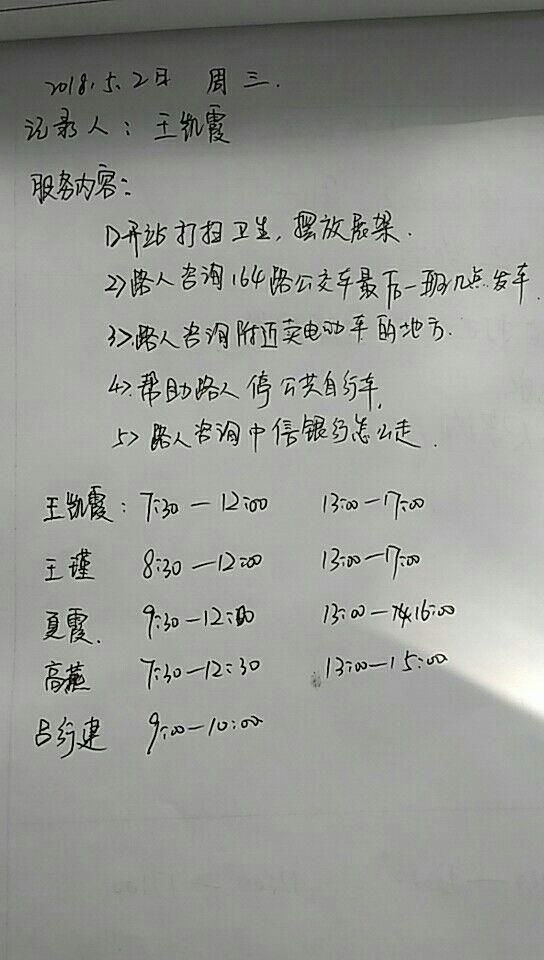 2018.5.2日 周三.
记录人：王凯霞
服务内容：
1>开站打扫卫生，摆放展架.
2>路人咨询164路公交车最后一班几点发车
3>路人咨询附近卖电动车的地方.
4>帮助路人停公共自行车.
5>路人咨询中信银行怎么走.
王凯霞：7:30—12:00 13:00—17:00
王瑾 8:30—12:00 13:00—17:00
夏霞. 9:30—12:00 13:00—16:00
高燕 7:30—12:30 13:00—15:00
吕行建 9:00—10:00